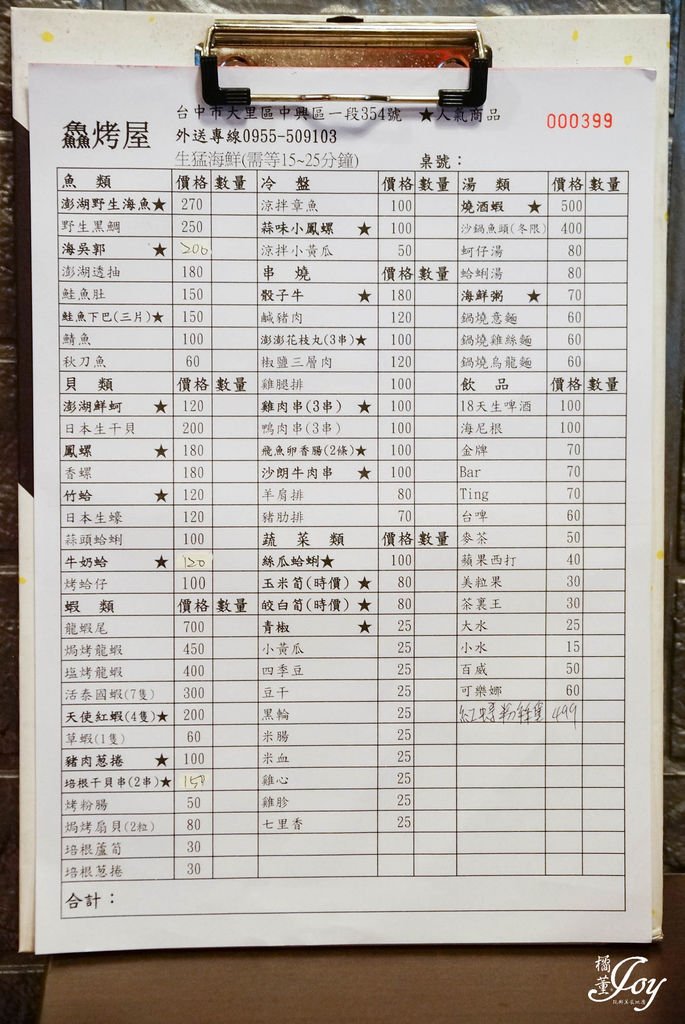 台中市大里區中興區一段354號 ★人氣商品
000399
鱻烤屋
外送專線0955-509103
生猛海鮮(需等15~25分鐘) 桌號：
魚 類 價格 數量 冷 盤 價格 數量 湯 類 價格 數量
澎湖野生海魚★ 270 涼拌章魚 100 燒酒蝦 ★ 500
野生黑鯛 250 蒜味小鳳螺 ★ 100 沙鍋魚頭(冬限) 400
海吳郭 ★ 200 涼拌小黃瓜 50 蚵仔湯 80
澎湖透抽 180 串 燒 價格 數量 蛤蜊湯 80
鮭魚肚 150 骰子牛 ★ 180 海鮮粥 ★ 70
鮭魚下巴(三片)★ 150 鹹豬肉 120 鍋燒意麵 60
鯖魚 100 澎澎花枝丸(3串)★ 100 鍋燒雞絲麵 60
秋刀魚 60 椒鹽三層肉 120 鍋燒烏龍麵 60
貝 類 價格 數量 雞腿排 100 飲 品 價格 數量
澎湖鮮蚵 ★ 120 雞肉串(3串) ★ 100 18天生啤酒 100
日本生干貝 200 鴨肉串(3串) 100 海尼根 100
鳳螺 ★ 180 飛魚卵香腸(2條)★ 100 金牌 70
香螺 180 沙朗牛肉串 ★ 100 Bar 70
竹蛤 ★ 120 羊肩排 80 Ting 70
日本生蠔 120 豬肋排 70 台啤 60
蒜頭蛤蜊 100 蔬 菜 類 價格 數量 麥茶 50
牛奶蛤 ★ 120 絲瓜蛤蜊★ 100 蘋果西打 40
烤蛤仔 100 玉米筍(時價) ★ 80 美粒果 30
蝦 類 價格 數量 皎白筍(時價) ★ 80 茶裏王 30
龍蝦尾 700 青椒 ★ 25 大水 25
焗烤龍蝦 450 小黃瓜 25 小水 15
塩烤龍蝦 400 四季豆 25 百威 50
活泰國蝦(7隻) 300 豆干 25 可樂娜 60
天使紅蝦(4隻)★ 200 黑輪 25 紅蟳粉絲煲 499
草蝦(1隻) 60 米腸 25
豬肉蔥捲 ★ 100 米血 25
培根干貝串(2串)★ 150 雞心 25
烤粉腸 50 雞胗 25
焗烤扇貝(2粒) 80 七里香 25
培根蘆筍 30
培根蔥捲 30
合計：
橘董
Joy